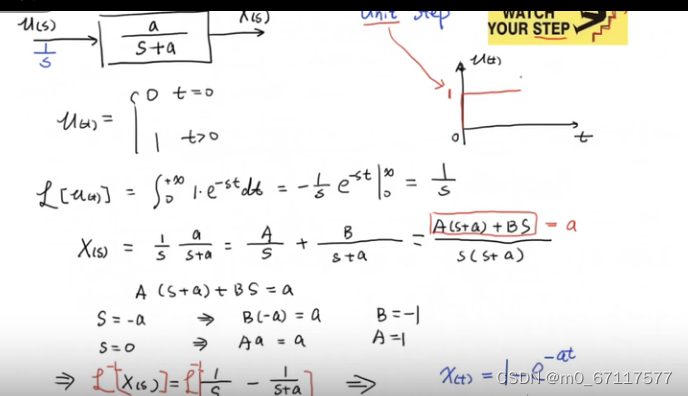 U(s) 1/s a/(s+a) X(s)
Unit Step
WATCH YOUR STEP
u(t)
1
0
t
u(t) = { 0 t=0
1 t>0
ℒ[u(t)] = ∫₀^{+∞} 1·e^{-st}dt = -1/s e^{-st}|₀^∞ = 1/s
X(s) = 1/s a/(s+a) = A/s + B/(s+a) = (A(s+a)+BS)/(s(s+a)) = a
A (s+a) + BS = a
S = -a ⇒ B(-a) = a B = -1
S = 0 ⇒ Aa = a A = 1
⇒ ℒ⁻[X(s)] = ℒ⁻[1/s - 1/(s+a)] ⇒ X(t) = 1 - e^{-at}
CSDN @m0_67117577